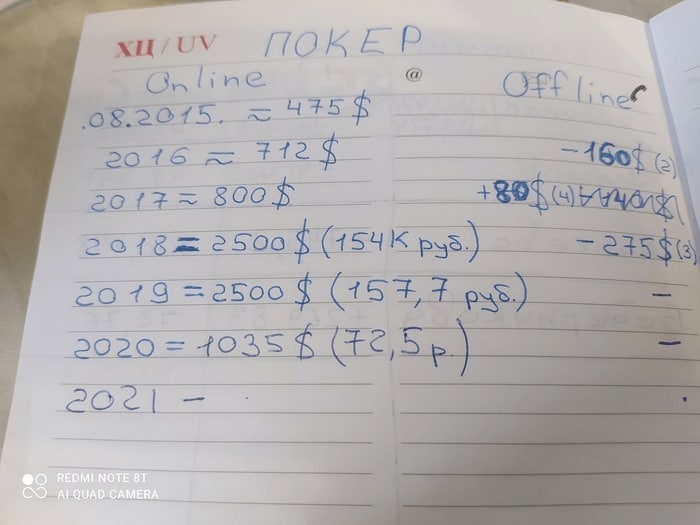 ХЦ / UV ПОКЕР
Online @ Offline
.08.2015. ≈ 475$
2016 ≈ 712$ -160$ (2)
2017 ≈ 800$ +80$ (4)
2018 = 2500$ (154К руб.) -275$ (3)
2019 = 2500$ (157,7 руб.) -
2020 = 1035$ (72,5р.) -
2021 -
REDMI NOTE 8T
AI QUAD CAMERA